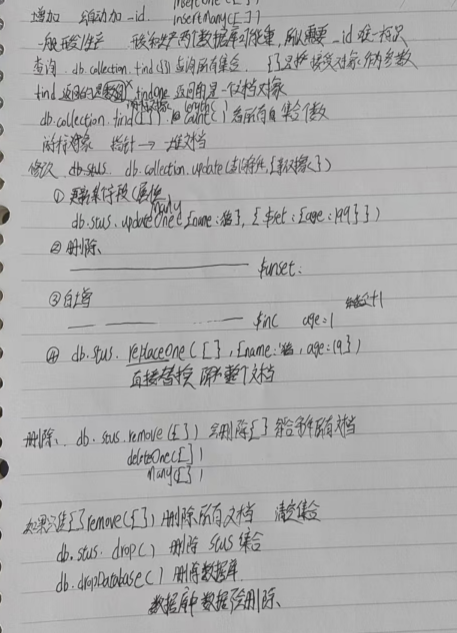 insertOne({})
增加 自动加 _id. insertMany([])
一般 生产 两个数据库可能重, 所以需要 _id 唯一标识
查询 db.collection.find({}) 查询所有集合. {}只能 接受对象作为参数
find 返回的是数组 findOne 返回的是一个文档对象
db.collection.find({}). count() 总所有集合个数
length()
游标对象 指针 → 一堆文档
修改 db.stus. db.collection.update(查询条件, {新对象})
① 更新某字段(属性
many
db.stus.updateOne({name:}, {$set:{age:199}})
② 删除
$unset:
③ 自增
$inc age:1 +1
④ db.stus.replaceOne({}, {name:'', age:19})
直接替换 整个文档
删除、 db.stus.remove({}) 会删除{} 符合条件所有文档
deleteOne({})
Many({})
如果只是{} remove({}) 删除所有文档 清空集合
db.stus.drop() 删除 stus 集合
db.dropDatabase() 删除数据库.
数据库中数据会删除、